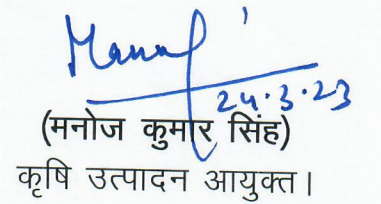 Manoj
24.3.23
(मनोज कुमार सिंह)
कृषि उत्पादन आयुक्त।